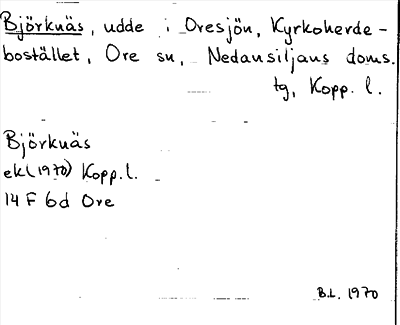 Björknäs, udde i Oresjön, Kyrkoherde-
bostället, Ore sn, Nedansiljans doms.
tg, Kopp. l.
Björknäs
ek (1970) Kopp. l.
14 F 6d Ore
B.L. 1970